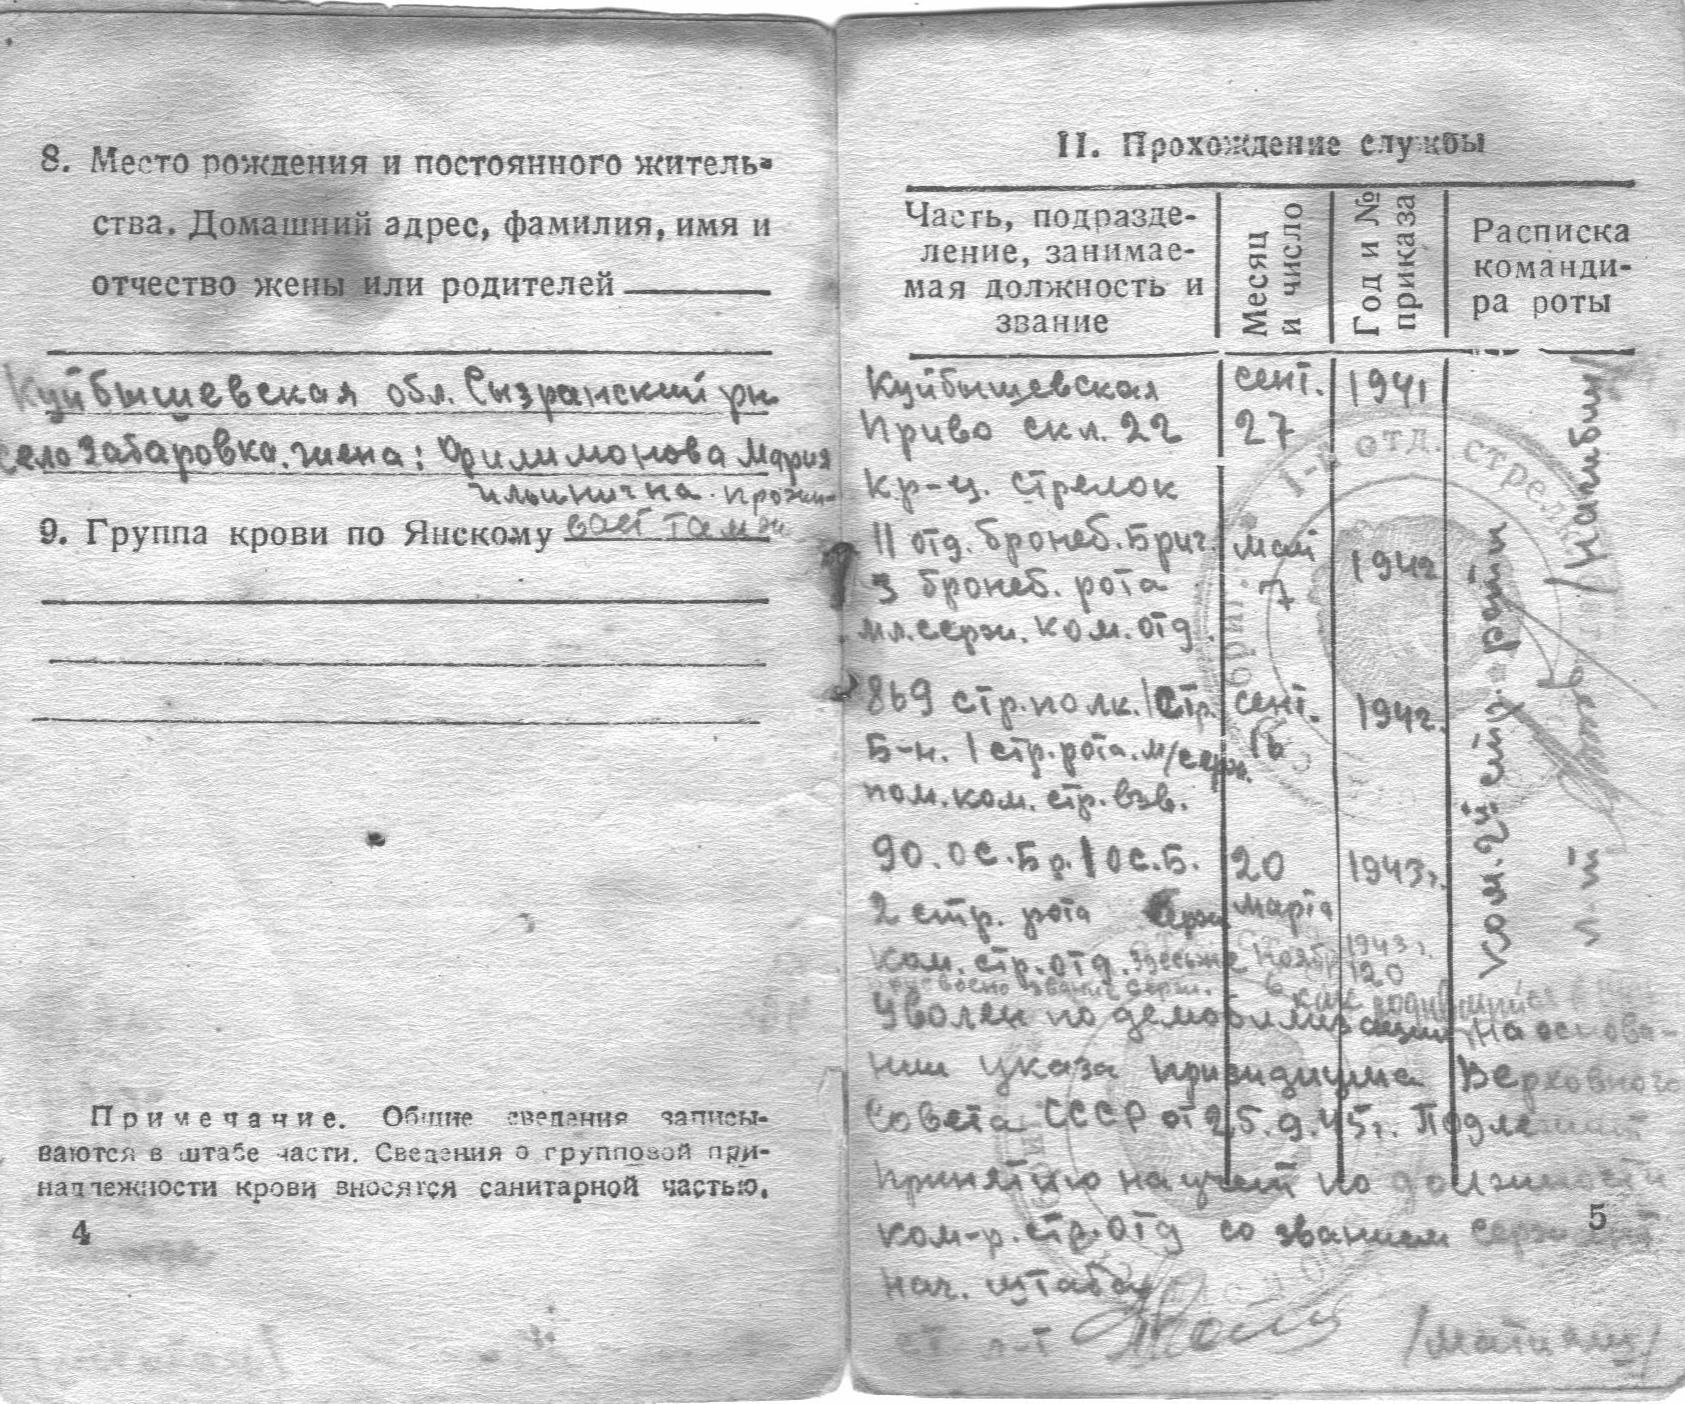 8. Место рождения и постоянного житель-
ства. Домашний адрес, фамилия, имя и
отчество жены или родителей
Куйбышевская обл. Сызранский рн
село Забаровка. жена: Филимонова Мария
Ильинична. прожи-
9. Группа крови по Янскому вает там же
Примечание. Общие сведения записы-
ваются в штабе части. Сведения о групповой при-
надлежности крови вносятся санитарной частью.
4
II. Прохождение службы
Часть, подразде-
ление, занимае-
мая должность и
звание
Месяц
и число
Год и №
приказа
Расписка
команди-
ра роты
Куйбышевская сент. 1941
Приво скл. 22 27
кр-ц. стрелок
11 отд. бронеб. Бриг. май 1942
3 бронеб. рота 7
мл. серж. ком. отд.
869 стр. полк. 1 стр. сент. 1942.
Б-н. 1 стр. рота. м/серж. 16
пом. ком. стр. взв.
90. ОС. Бр. 1 ОС. Б. 20 1943 г.
2 стр. рота марта
ком. стр. отд. здесь же Ноябр 1943 г.
присвоено звание серж. 6 120
Уволен по демобилизации, На основа-
нии указа призидиума Верховного
Совета СССР от 25.9.45 г. Подлежит
принятию на учет по должности
ком-р. стр. отд со званием сержант
нач. штаба
ст л-т
ком. 2й стр. роты
л-т
1-й отд. стрелк
бриг.
5